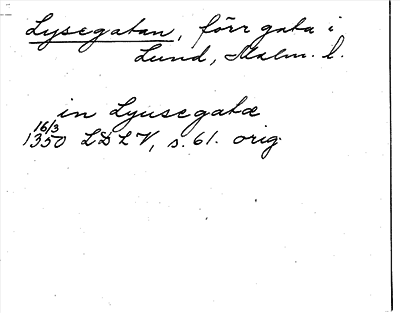 Lysegatan, förr gata i
Lund, Malm. l.
in Lyusegatæ
16/3
1350 LDLV, s. 61. orig